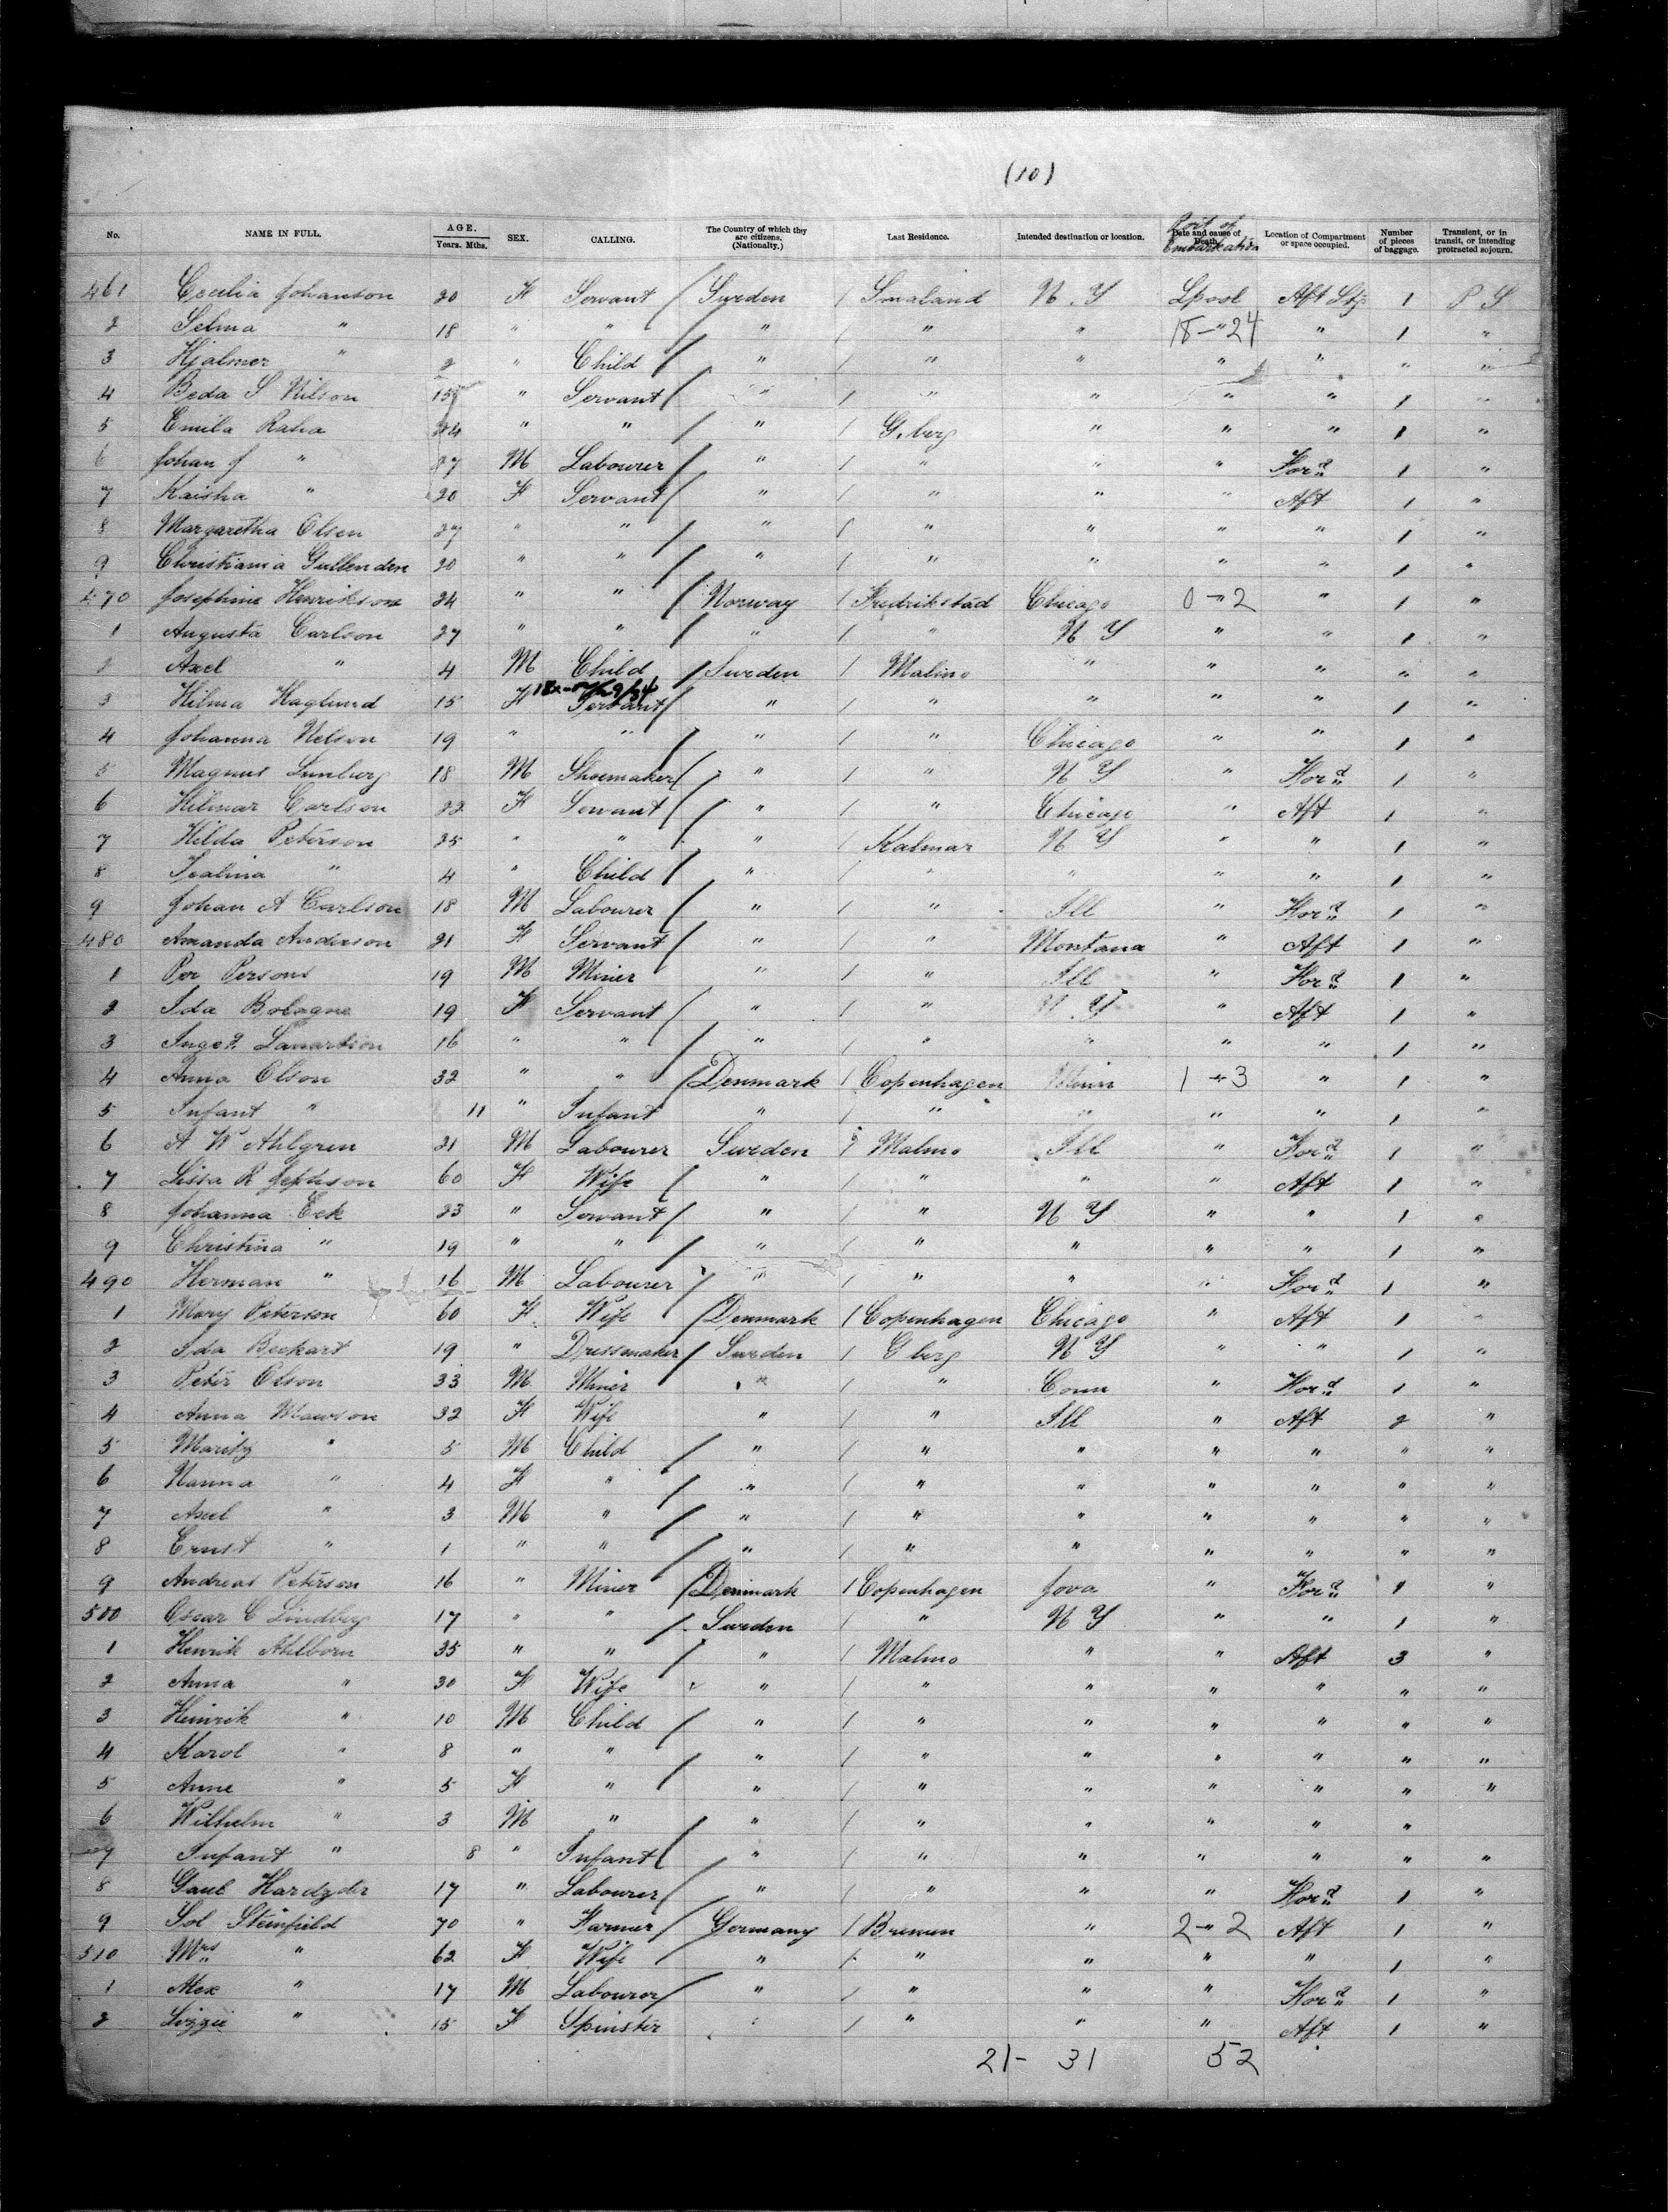 (10)
No. NAME IN FULL. AGE. Years. Mths. SEX. CALLING. The Country of which they are citizens. (Nationalty.) Last Residence. Intended destination or location. Date and cause of Death. Port of Embarkation Location of Compartment or space occupied. Number of pieces of baggage. Transient, or in transit, or intending protracted sojourn.
461 Cecilia Johanson 20 F Servant / Sweden / Smaland N.Y Lpool Aft Stg 1 P S
2 Selma " 18 " " / " / " " 18-"24 " 1 "
3 Hjalmer " 2 " Child / " / " " " " " "
4 Beda S Nilson 15 " Servant / " / " " " " 1 "
5 Emila Raha 24 " " / " / G.berg " " " 1 "
6 Johan J " 27 M Labourer / " / " " " Ford 1 "
7 Kaisha " 20 F Servant / " / " " " Aft 1 "
8 Margaretha Olsen 27 " " / " / " " " " 1 "
9 Christiania Gullenden 20 " " / " / " " " " 1 "
470 Josephine Henrikson 24 " " / Norway / Fredrikstad Chicago 0-"2 " 1 "
1 Augusta Carlson 27 " " / " / " N Y " " 1 "
2 Axel " 4 M Child / Sweden / Malmo " " " " "
3 Hilma Haglund 15 F Servant / " / " " " " 1 "
4 Johanna Nelson 19 " " / " / " Chicago " " 1 "
5 Magnus Lunburg 18 M Shoemaker / " / " N Y " Ford 1 "
6 Hilmar Carlson 22 F Servant / " / " Chicago " Aft 1 "
7 Hilda Peterson 25 " " / " / Kalmar N Y " " 1 "
8 " 4 " Child / " / " " " " 1 "
9 Johan A Carlson 18 M Labourer / " / " Ill " Ford 1 "
480 Amanda Anderson 21 F Servant / " / " Montana " Aft 1 "
1 Per Persons 19 M Miner " / " Ill " Ford 1 "
2 Ida Bologne 19 F Servant / " / " N Y " Aft 1 "
3 16 " " / " / " " " " 1 "
4 Anna Olson 32 " " / Denmark / Copenhagen 1-"3 " 1 "
5 Infant " 11 " Infant " / " " " " 1 "
6 A W Ahlgren 21 M Labourer Sweden Malmo Ill " Ford 1 "
7 Lissa R Jepson 60 F Wife / " / " " " Aft 1 "
8 Johanna Eck 23 " Servant / " / " N Y " " 1 "
9 Christina " 19 " " / " / " " " " 1 "
490 Herman " 16 M Labourer / " / " " " Ford 1 "
1 Mary Peterson 60 F Wife / Denmark / Copenhagen Chicago " Aft 1 "
2 Ida Beckart 19 " Dressmaker / Sweden / G berg N Y " " 1 "
3 Peter Olson 33 M Miner " / " Conn " Ford 1 "
4 Anna Mawson 32 F Wife " / " Ill " Aft 2 "
5 Maritz " 5 M Child / " / " " " " " "
6 Nanna " 4 F " / " / " " " " " "
7 Axel " 3 M " / " / " " " " " "
8 Ernst " 1 " " / " / " " " " " "
9 Andreas Peterson 16 " Miner / Denmark / Copenhagen Jova " Ford 1 "
500 Oscar C Lindberg 17 " " / Sweden / " N Y " " 1 "
1 Henrik Ahlborn 35 " " / " / Malmo " " Aft 3 "
2 Anna " 30 F Wife " / " " " " " "
3 Heinrik " 10 M Child / " / " " " " " "
4 Karol " 8 " " / " / " " " " " "
5 Anne " 5 F " / " / " " " " " "
6 Wilhelm " 3 M " / " / " " " " "
7 Infant " 8 " Infant / " / " " " " " "
8 Hardzder 17 " Labourer / " / " " " Ford 1 "
9 Sol Steinfield 70 " Farmer / Germany / Bremen " 2-"2 Aft 1 "
510 Mrs " 62 F Wife / " / " " " " 1 "
1 Alex " 17 M Labourer / " / " " " Ford 1 "
2 Lizzie " 15 F Spinster " / " " " Aft 1 "
21- 31 52